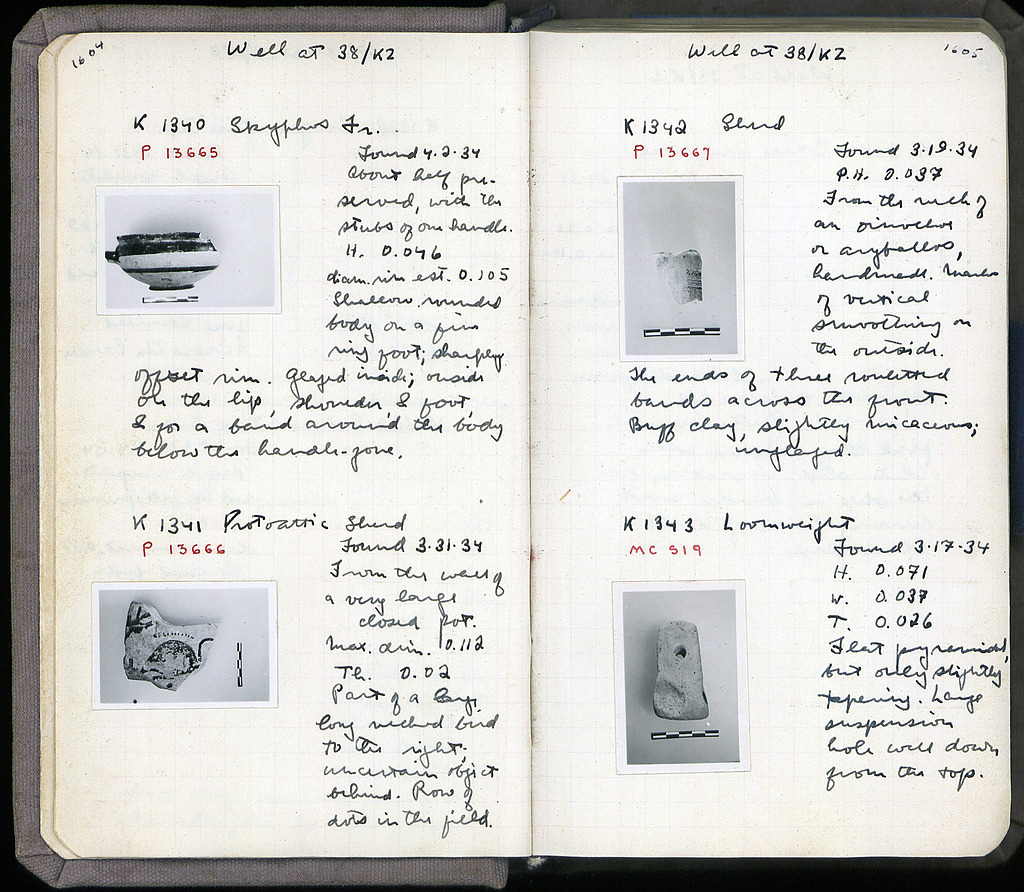 1604
Well at 38/KZ
K 1340 Skyphos Fr.
P 13665
Found 4.2.34
About half pre-
served, with the
stubs of one handle.
H. 0.046
diam. rim est. 0.105
Shallow, rounded
body on a fine
ring foot; sharply
offset rim. Glazed inside; outside
on the lip, shoulder, & foot,
& for a band around the body
below the handle-zone.
K 1341 Protoattic Sherd
P 13666
Found 3.31.34
From the wall of
a very large
closed pot.
Max. dim. 0.112
Th. 0.02
Part of a
long necked bird
to the right;
uncertain object
behind. Row of
dots in the field.
1605
Well at 38/KZ
K 1342 Sherd
P 13667
Found 3.19.34
P.H. 0.037
From the neck of
an oinochoe
or aryballos,
handmade. Marks
of vertical
smoothing on
the outside.
The ends of three rouletted
bands across the front.
Buff clay, slightly micaceous;
unglazed.
K 1343 Loomweight
MC 519
Found 3.17.34
H. 0.071
W. 0.037
T. 0.026
Flat pyramidal,
but only slightly
tapering. Large
suspension
hole well down
from the top.